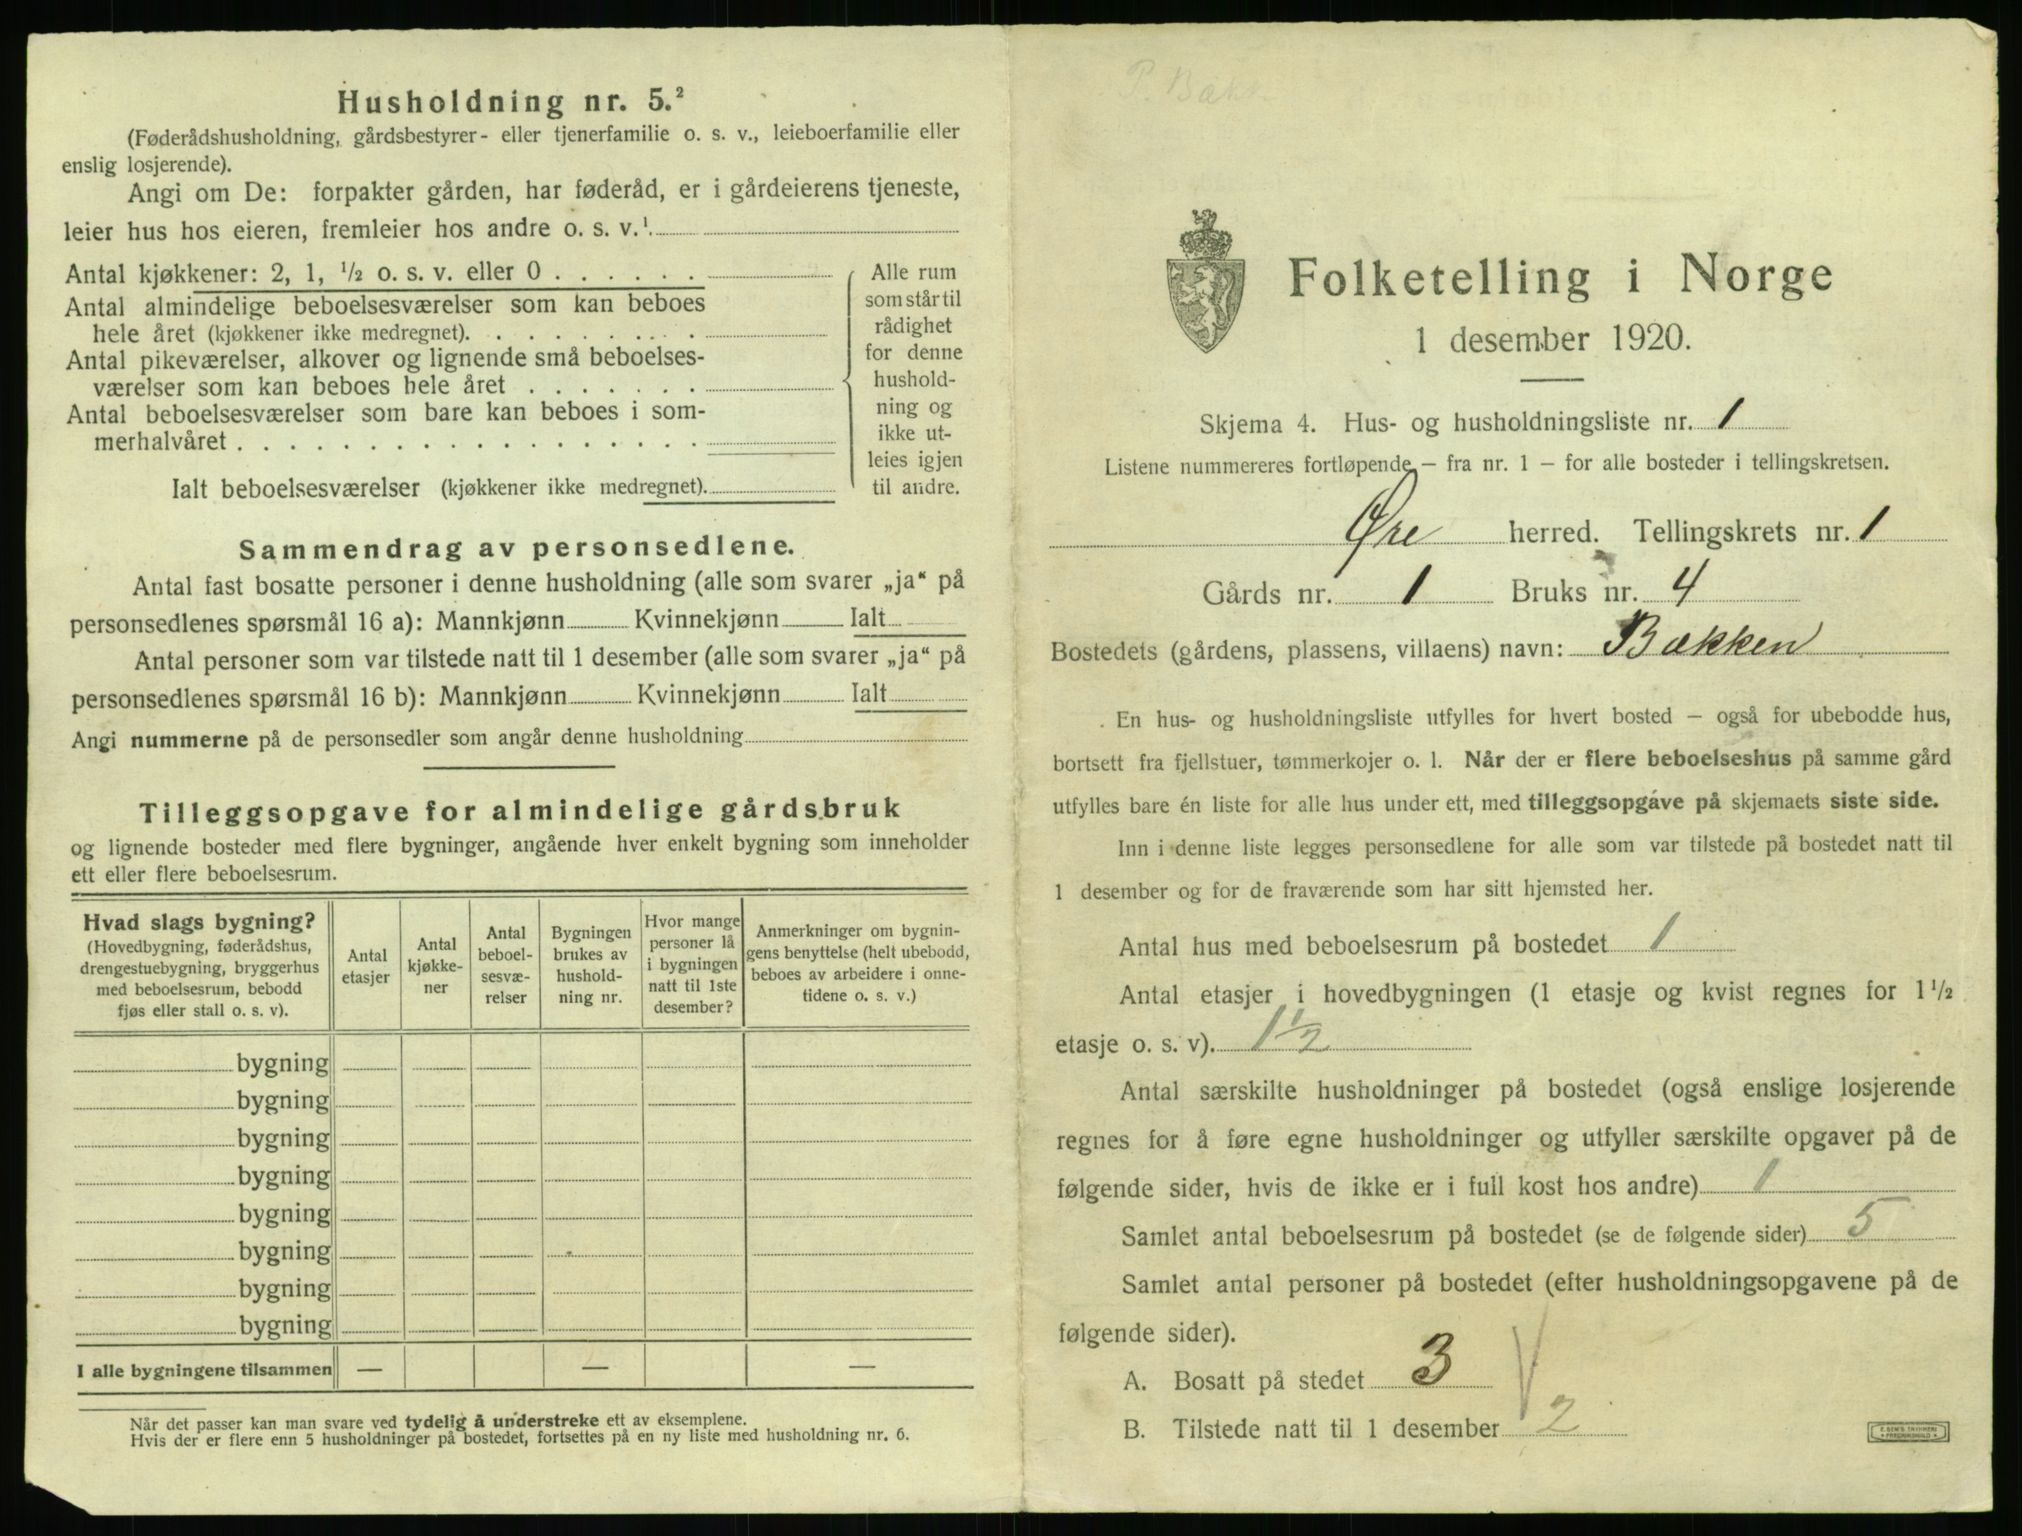 Husholdning nr. 5.²
(Føderådshusholdning, gårdsbestyrer- eller tjenerfamilie o. s. v., leieboerfamilie eller
enslig losjerende).
Angi om De: forpakter gården, har føderåd, er i gårdeierens tjeneste,
leier hus hos eieren, fremleier hos andre o. s. v.¹
Antal kjøkkener: 2, 1, ½ o. s. v. eller 0 . . . . . .
Antal almindelige beboelsesværelser som kan beboes
hele året (kjøkkener ikke medregnet). . . . . . . . .
Antal pikeværelser, alkover og lignende små beboelses-
værelser som kan beboes hele året . . . . . . .
Antal beboelsesværelser som bare kan beboes i som-
merhalvåret . . . . . . . . . . . . . . . . . .
Ialt beboelsesværelser (kjøkkener ikke medregnet).
Alle rum
som står til
rådighet
for denne
hushold-
ning og
ikke ut-
leies igjen
til andre.
Sammendrag av personsedlene.
Antal fast bosatte personer i denne husholdning (alle som svarer „ja“ på
personsedlenes spørsmål 16 a): Mannkjønn Kvinnekjønn Ialt
Antal personer som var tilstede natt til 1 desember (alle som svarer „ja“ på
personsedlenes spørsmål 16 b): Mannkjønn Kvinnekjønn Ialt
Angi nummerne på de personsedler som angår denne husholdning
Tilleggsopgave for almindelige gårdsbruk
og lignende bosteder med flere bygninger, angående hver enkelt bygning som inneholder
ett eller flere beboelsesrum.
Hvad slags bygning?
(Hovedbygning, føderådshus,
drengestuebygning, bryggerhus
med beboelsesrum, bebodd
fjøs eller stall o. s. v).
Antal
etasjer
Antal
kjøkke-
ner
Antal
beboel-
sesvæ-
relser
Bygningen
brukes av
hushold-
ning nr.
Hvor mange
personer lå
i bygningen
natt til 1ste
desember?
Anmerkninger om bygnin-
gens benyttelse (helt ubebodd,
beboes av arbeidere i onne-
tidene o. s. v.)
bygning
bygning
bygning
bygning
bygning
bygning
bygning
bygning
I alle bygningene tilsammen — — —
Når det passer kan man svare ved tydelig å understreke ett av eksemplene.
Hvis der er flere enn 5 husholdninger på bostedet, fortsettes på en ny liste med husholdning nr. 6.
Folketelling i Norge
1 desember 1920.
Skjema 4. Hus- og husholdningsliste nr. 1
Listene nummereres fortløpende – fra nr. 1 – for alle bosteder i tellingskretsen.
Øre herred. Tellingskrets nr. 1
Gårds nr. 1 Bruks nr. 4
Bostedets (gårdens, plassens, villaens) navn: Bækken
En hus- og husholdningsliste utfylles for hvert bosted – også for ubebodde hus,
bortsett fra fjellstuer, tømmerkojer o. l. Når der er flere beboelseshus på samme gård
utfylles bare én liste for alle hus under ett, med tilleggsopgave på skjemaets siste side.
Inn i denne liste legges personsedlene for alle som var tilstede på bostedet natt til
1 desember og for de fraværende som har sitt hjemsted her.
Antal hus med beboelsesrum på bostedet 1
Antal etasjer i hovedbygningen (1 etasje og kvist regnes for 1 ½
etasje o. s. v). 1½
Antal særskilte husholdninger på bostedet (også enslige losjerende
regnes for å føre egne husholdninger og utfyller særskilte opgaver på de
følgende sider, hvis de ikke er i full kost hos andre) 1
Samlet antal beboelsesrum på bostedet (se de følgende sider) 5
Samlet antal personer på bostedet (efter husholdningsopgavene på de
følgende sider).
A. Bosatt på stedet 3
B. Tilstede natt til 1 desember 2